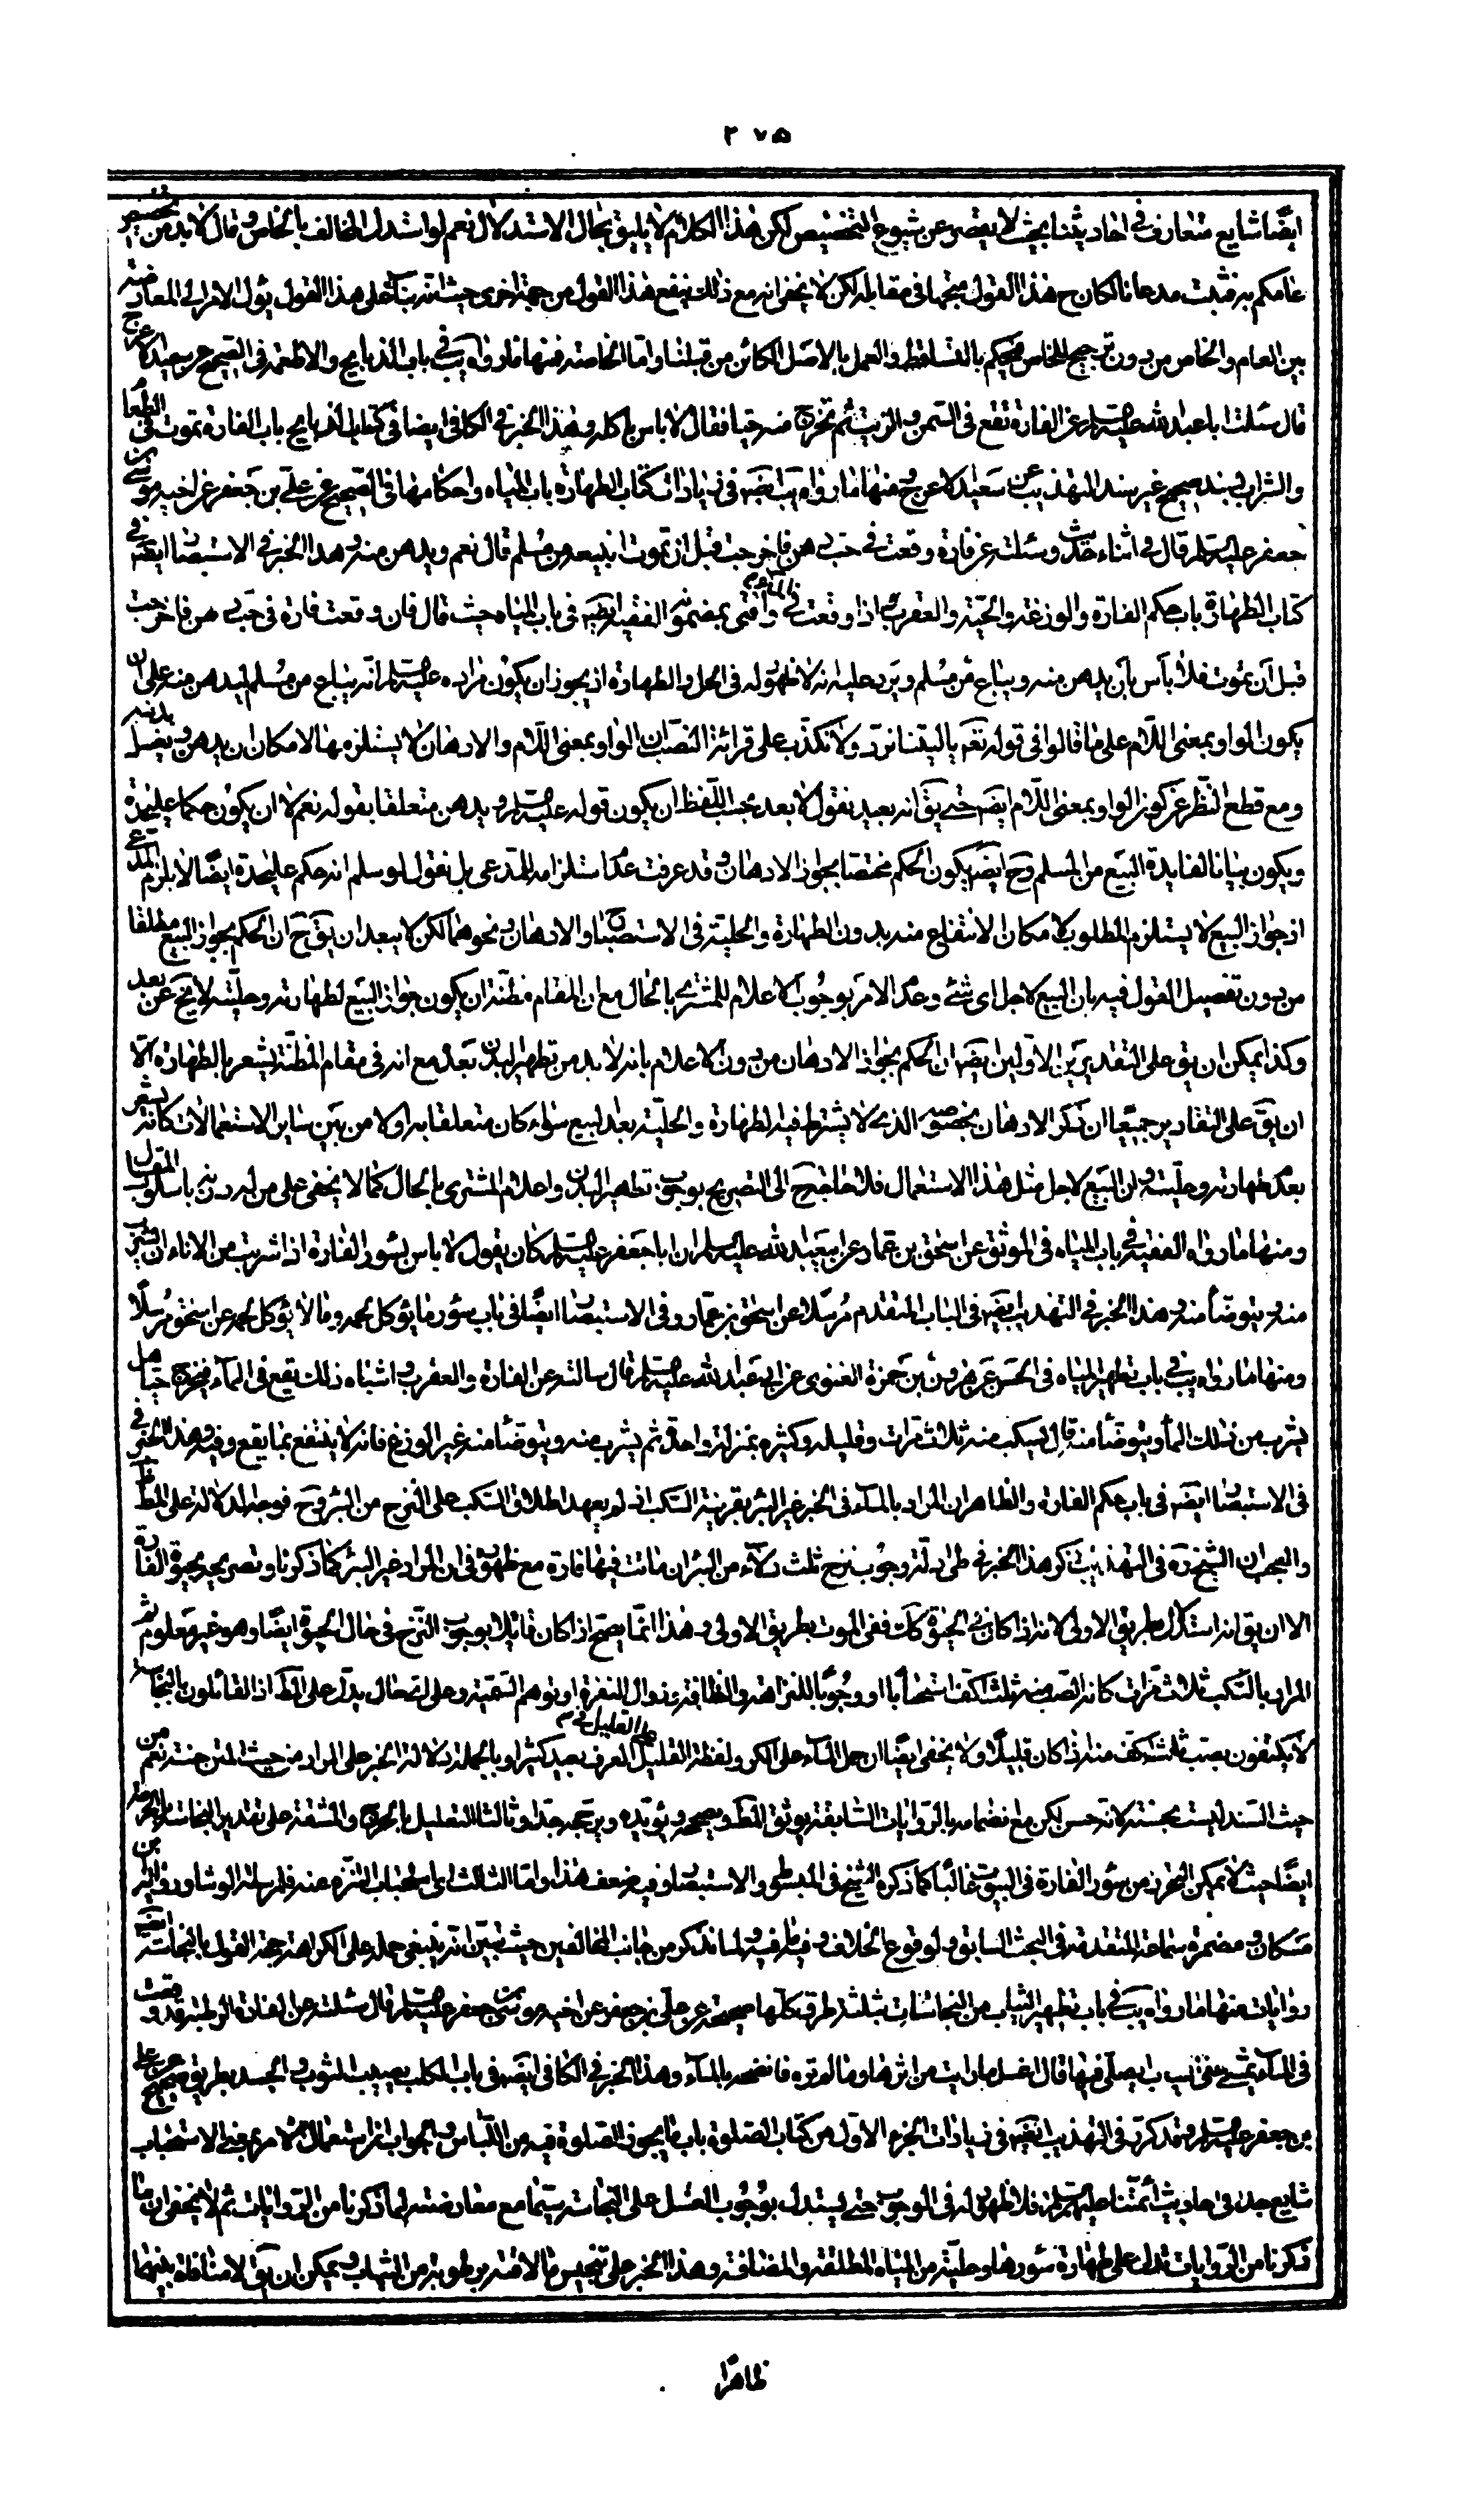 ٢٧٥
ايضًا شايع متعارف في احاديثنا بحيث لا يقصر عن شيوع التخصيص لكن هذا الكلام لا يليق بحال الاستدلال نعم لو استدل المخالف بالخاص وقال لا بد من تخصيص
عامكم به فيثبت مدعانا لكان ح هذا القول متجها في مقابله لكن لا يخفى انه مع ذلك ينفع هذا القول من جهة اخرى حيث انه بناء على هذا القول يؤل الامر الى المعارضة
بين العام والخاص من دون ترجيح للخاص فيحكم بالتساقط والعمل بالاصل الكائن من قبلنا واما الخاصة فمنها ما رواه يب في باب الذبايح والاطعمة في الصحيح عن سعيد الاعرج
قال سئلت ابا عبد الله عليه السلام عن الفارة تقع في السمن والزيت ثم تخرج منه حيا فقال لا باس باكله وهذا الخبر في الكافي ايضا في كتاب الذبايح باب الفارة تموت في الطعام
والشراب بسند صحيح غير سند التهذيب عن سعيد الاعرج ومنها ما رواه يب ايضه في زيادات كتاب الطهارة باب المياه واحكامها في الصحيح عن علي بن جعفر عن اخيه موسى بن
جعفر عليه السلام قال في اثناء حديث وسئلته عن فارة وقعت في حب دهن فاخرجت قبل ان تموت ابيعه من مسلم قال نعم ويدهن منه وهذا الخبر في الاستبصار ايضه في
كتاب الطهارة باب حكم الفارة والوزغة والحية والعقرب اذا وقعت في الماء وافتى بمضمونه الفقيه ايضه في باب المياه حيث قال فان وقعت فارة في حب دهن فاخرجت
قبل ان تموت فلا باس بان يدهن منه ويباع من مسلم ويرد عليه انه لا ظهور له في الحل والطهارة اذ يجوز ان يكون مراده عليه السلام انه يباع من مسلم ليدهن منه على ان
يكون الواو بمعنى اللام على ما قالوا في قوله تعم يا ليتنا نرد ولا نكذب على قرائة النصب ان الواو بمعنى اللام والادهان لا يستلزمهما لامكان ان يدهن ويغسل بدنه
ومع قطع النظر عن كون الواو بمعنى اللام ايضه حتى يق انه بعيد نقول لا بعد بحسب اللفظ ان يكون قوله عليه السلام ويدهن متعلقا بقوله نعم لا ان يكون حكما عليحدة
ويكون بيانا لفايدة البيع من المسلم وح ايضه يكون الحكم مختصا بجواز الادهان وقد عرفت عدم استلزامه للمدعى بل نقول لو سلم انه حكم عليحدة ايضا لا يلزم المدعى
اذ جواز البيع لا يستلزم المطلوب لامكان الانتفاع منه بدون الطهارة والحلية في الاستصباح والادهان ونحوهما لكن لا يبعد ان يق ح ان الحكم بجواز البيع مطلقا
من دون تفصيل القول فيه بان البيع لاجل اي شئ وعدم الامر بوجوب الاعلام للمشتري بالحال مع ان المقام مظنة ان يكون جواز البيع لطهارته وحليته لا يخ عن بعد
وكذا يمكن ان يق على التقديرين الاولين ايضه ان الحكم بجواز الادهان من دون الاعلام بانه لا بد من تطهير البدن بعده مع انه في مقام المظنة يشعر بالطهارة الا
ان يق على التقادير جميعا ان ذكر الادهان بخصوصه الذي لا يشترط فيه الطهارة والحلية بعد البيع سواء كان متعلقا به اولا من بين ساير الاستعمالات كانه يشعر
بعدم طهارته وحليته وان البيع لاجل مثل هذا الاستعمال فلا حاجة ح الى التصريح بوجوب تطهير البدن واعلام المشتري بالحال كما لا يخفى على من له دربة باسلوب المقال
ومنها ما رواه الفقيه في باب المياه في الموثق عن اسحق بن عمار عن ابيعبد الله عليه السلام ان ابا جعفر عليه السلام كان يقول لا باس بسؤر الفارة اذا شربت من الاناء ان تشرب
منه وتتوضأ منه وهذا الخبر في التهذيب ايضه في الباب المتقدم مرسلا عن اسحق بن عمار وفي الاستبصار ايضا في باب سؤر ما يؤكل لحمه وما لا يؤكل لحمه عن اسحق مرسلا
ومنها ما رواه يب في باب تطهير المياه في الحسن عن هرون بن حمزة الغنوي عن ابي عبد الله عليه السلام قال سالته عن الفارة والعقرب واشباه ذلك يقع في الماء فيخرج حيا هل
يشرب من ذلك الماء ويتوضأ منه قال يسكب منه ثلاث مرات وقليله وكثيره بمنزلة واحدة ثم يشرب منه ويتوضأ منه غير الوزغ فانه لا ينتفع بما يقع وفيه وهذا الخبر في
في الاستبصار ايضه في باب حكم الفارة والظاهر ان المراد بالماء في الخبر غير البئر بقرينة السكب اذ لم يعهد اطلاق السكب على النزح من البئر وح فوجه الدلالة على المط ظ
والعجب ان الشيخ ره في التهذيب ذكر هذا الخبر في طي ادلة وجوب نزح ثلث دلاء من البئر ان ماتت فيها فارة مع ظهوره في ان المراد غير البئر كما ذكرنا وتصريحه بحيوة الفارة
الا ان يق انه استدل بطريق الاولى لانه اذا كان في الحيوة كك ففي الموت بطريق الاولى وهذا انما يصح اذ كان قائلا بوجوب النزح في حال الحيوة ايضا وهو غير معلوم ثم
المراد بالسكب ثلاث مرات كانه الصب منه ثلث اكف استحبابا او وجوبا للنزاهة والنظافة وزوال النفرة او توهم السمية وعلى اي حال يدل على المط اذ القائلون بالنجاسة
لا يكتفون بصب ثلث اكف منه اذا كان قليلا ولا يخفى ايضا ان حمل الماء على الكر ولفظة القليل على القليل في العرف بعيد كثيرا وبالجملة دلالة الخبر على المراد من حيث المتن حسنة نعم من
حيث السند ليست بحسنة لانه حسن لكن مع انضمامه بالروايات السابقة يوثق المط ويصححه ويؤيده ويرجحه جدا وثالثا التعليل بالحرج والمشقة على تقدير النجاسة
ايضا حيث لا يمكن التحرز من سؤر الفارة في البيوت غالبا كما ذكره الشيخ في المبسوط والاستبصار وفيه ضعف هذا واما الثالث اي استحباب التنزه عنه فلمرسلة الوشا ورواية ابن
مسكان ومضمرة سماعة المتقدمة في البحث السابق ولوقوع الخلاف وفيه ما فيه ولما نذكر من جانب المخالفين حيث تبين انه ينبغي حمله على الكراهة حجة القول بالنجاسة ايضه
روايات منها ما رواه يب في باب تطهير الثياب من النجاسات بثلثة طرق كلها صحيحة عن علي بن جعفر عن اخيه موسى بن جعفر عليه السلام قال سئلته عن الفارة الرطبة قد وقعت
في الماء تمشي على الثياب ايصلى فيها قال اغسل ما رايت من اثرها وما لم تره فانضحه بالماء وهذا الخبر في الكافي ايضه في باب الكلب يصيب الثوب والجسد بطريق صحيح عن علي
بن جعفر عليه السلام وقد كرره في التهذيب ايضه في زيادات الجزء الاول من كتاب الصلوة باب ما يجوز الصلوة فيه من اللباس والجواب ان استعمال الامر بمعنى الاستحباب
شايع جدا في احاديث ائمتنا عليهم السلام فلا ظهور له في الوجوب حتى يستدل بوجوب الغسل على النجاسة سيما مع معارضته لما ذكرنا من الروايات ثم لا يخفى ان ما
ذكرنا من الروايات تدل على طهارة سؤرها وحليته من المياه المطلقة والمضافة وهذا الخبر على تنجيس ما لاقته برطوبة من الثياب ويمكن ان يق لا منافاة بينهما
ظاهرا